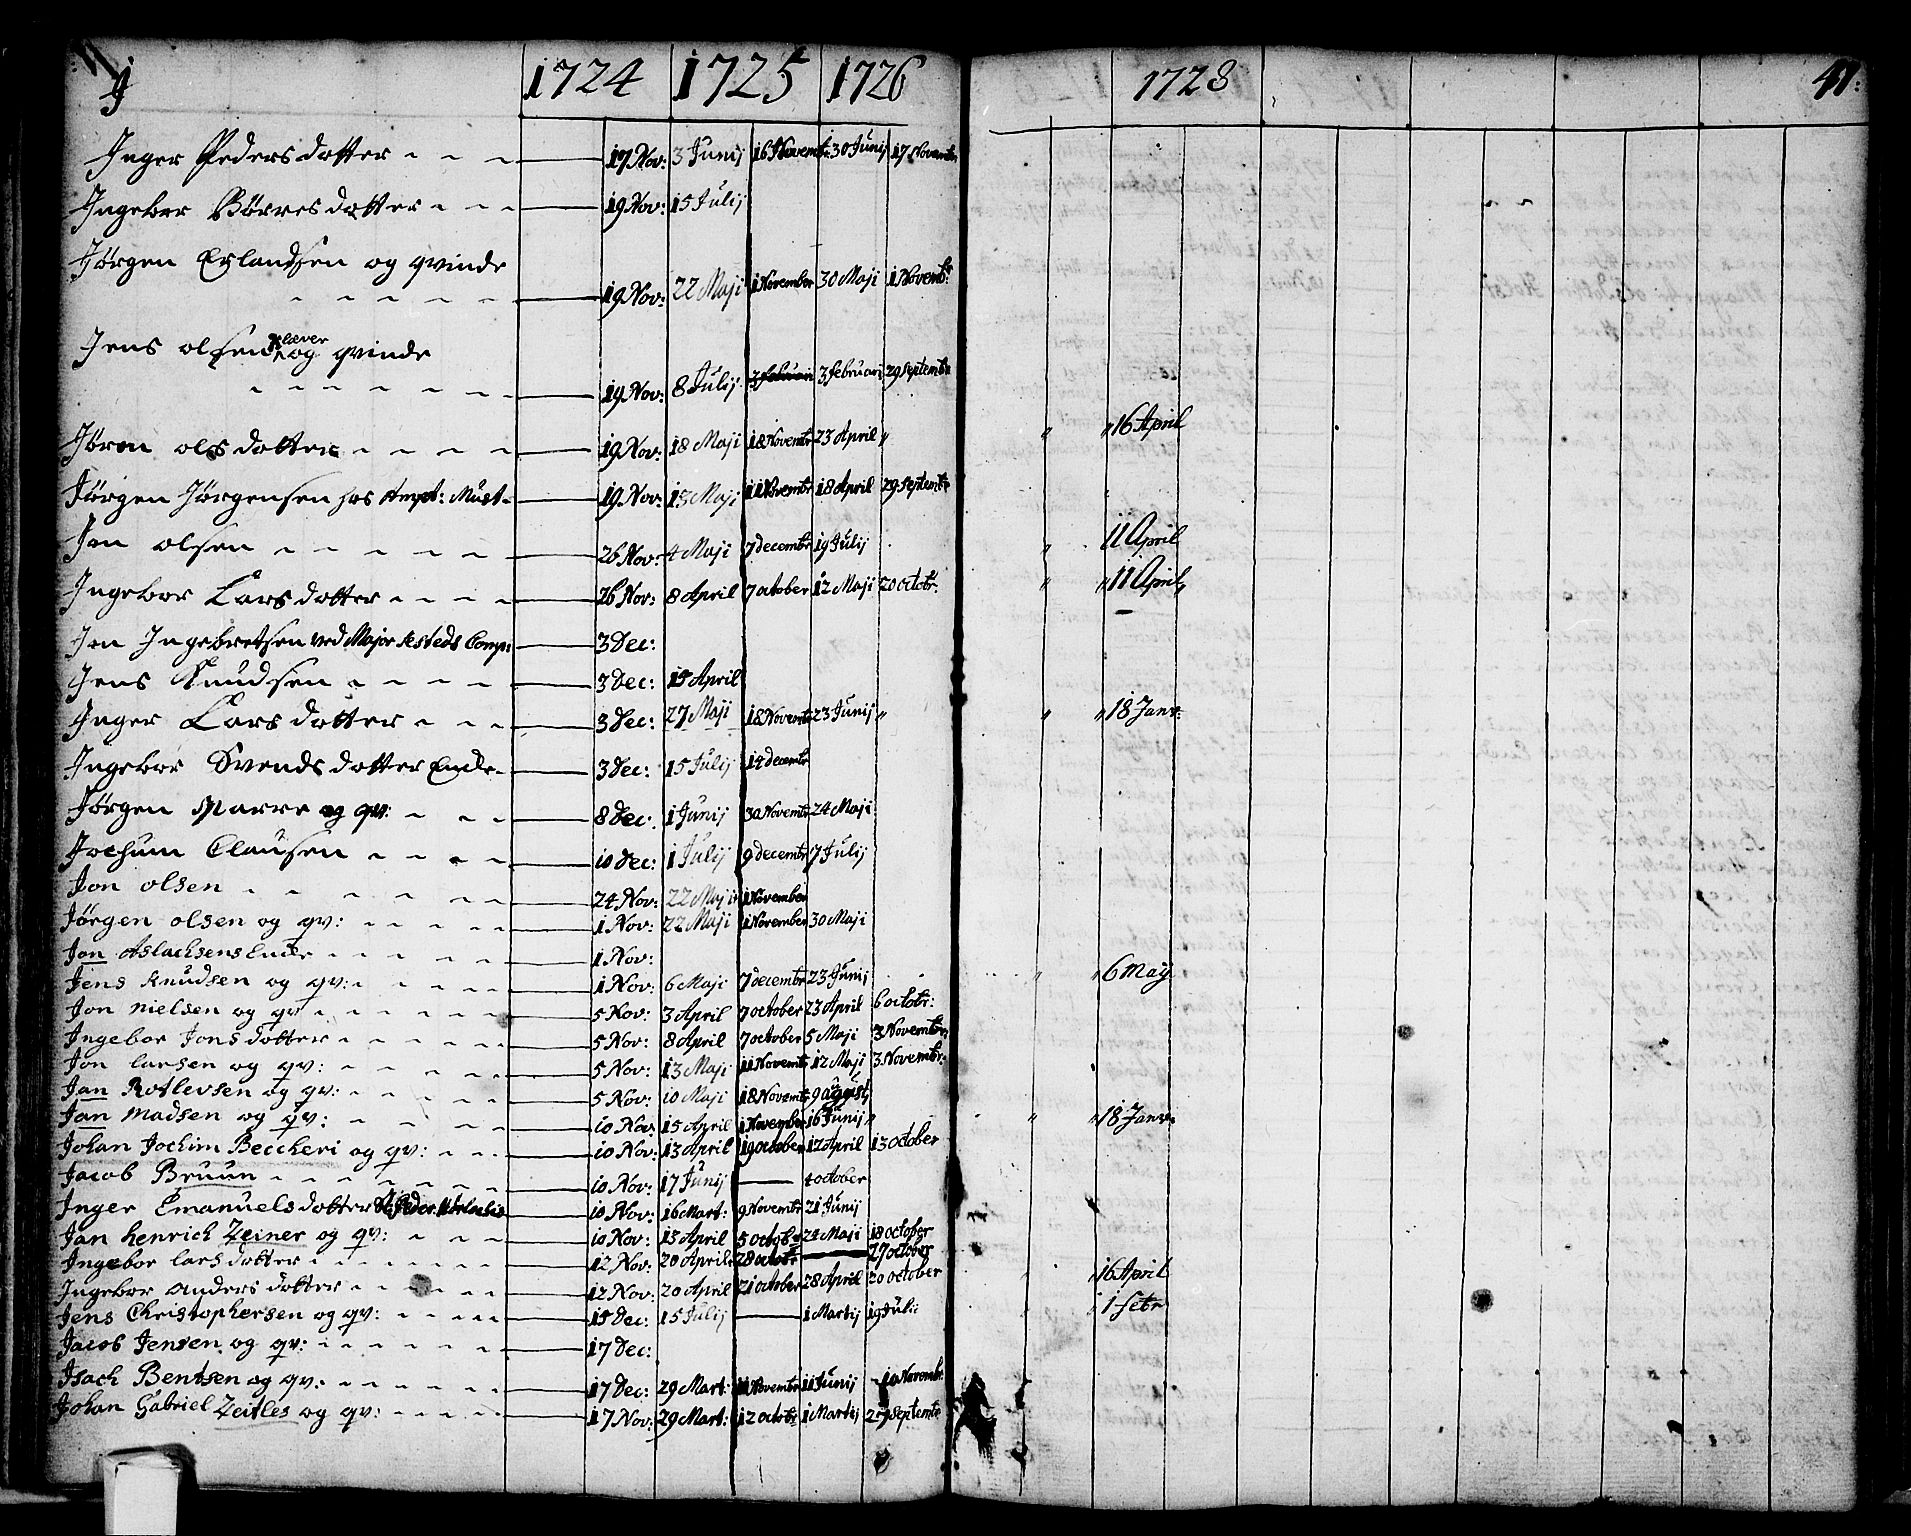 J 1724 1725 1726 1728 41:
Inger Peders dotter - - - 17 Nov: 3 Junij 16 Novembr 30 Junij 17 Novembr
Ingebor Börres dotter - - - 19 Nov: 15 Julij
Jörgen Erlandsen og qvinde
- - - - - 19 Nov: 22 Maji 1 November 30 Maji 1 Novembr:
Jens olsen og qvinde
- - - - - - 19 Nov: 8 Julij 3 februari 3 februari 29 Septembr
Jören olsdotter - - - - 19 Nov: 18 Maji 18 Novembr 23 April " " " 16 April
Jörgen Jörgensen hos Ampt: Must- 19 Nov: 13 Maji 11 Novembr 18 April 29 Septembr
Jon olsen - - - - - 26 Nov: 4 Maji 7 decembr 19 Julij " 11 April
Ingebor Lars dotter - - - - 26 Nov: 8 April 7 october 12 Maji 20 octobr: " " 11 April
Jon Ingebretsen ved Major Comp: 3 Dec:
Jens Knudsen - - - - 3 Dec: 15 April
Inger Lars dotter - - - 3 Dec: 27 Maji 18 Novembr 23 Junij " " " 18 Janr:
Ingebor Svends dotter Enke - 3 Dec: 15 Julij 14 decembr
Jörgen og qv: - - - 8 Dec: 1 Junij 30 Novembr 24 Maji
Jochum Clausen - - - - 10 Dec: 1 Julij 9 decembr 7 Julij
Jon olsen - - - - - 24 Nov: 22 Maji 1 November
Jörgen olsen og qv: - - - - 1 Nov: 22 Maji 1 November 30 Maji
Jon Aslachsens Enke - - - - - 1 Nov:
Jens Knudsen og qv: - - - - 1 Nov: 6 Maji 7 decembr 23 Junij " " 6 Maij
Jon Nielsen og qv - - - - - 5 Nov: 3 April 7 october 23 April 6 octobr:
Ingebor Jons dotter - - - - - 5 Nov: 8 April 7 october 5 Maji 3 Novembr
Jon Larsen og qv: - - - - 5 Nov: 13 Maji 11 Novembr 12 Maji 3 Novembr:
Jan Rotlevsen og qv: - - - - 5 Nov: 10 Maji 18 Novembr 9 august
Jan Madsen og qv: - - - - 10 Nov: 15 April 1 November 16 Junij " " " 18 Janr:
Johan Jochim Beccheri og qv: - - - 10 Nov: 13 April 19 october 12 April 13 october
Jacob Bruun - - - - - - 10 Nov: 17 Junij 4 october
Inger Emanuels dotter 10 Nov: 16 Mart: 9 Novembr 21 Junij
Jan Henrich Zeiner og qv: - - - 10 Nov: 13 April 5 octobr 24 Maji 18 october
Ingebor Lars dotter - - - - - - 12 Nov: 20 April 28 octobr 27 october
Ingebor Anders dotter - - - - - 12 Nov: 20 April 21 october 28 April 20 october " 16 April
Jens Christophersen og qv: - - - - 15 Dec: 15 Julij 1 Martij 19 Julii " 1 febr
Jacob Jensen og qv: - - - - - 17 Dec:
Isach Bentsen og qv: - - - - - 17 Dec: 29 Mart: 11 Novembr 11 Junij 10 Novembr
Johan Gabriel Zeitles og qv: - - - - 17 Nov: 29 Mart: 12 octobr 1 Martij 27 Septembr